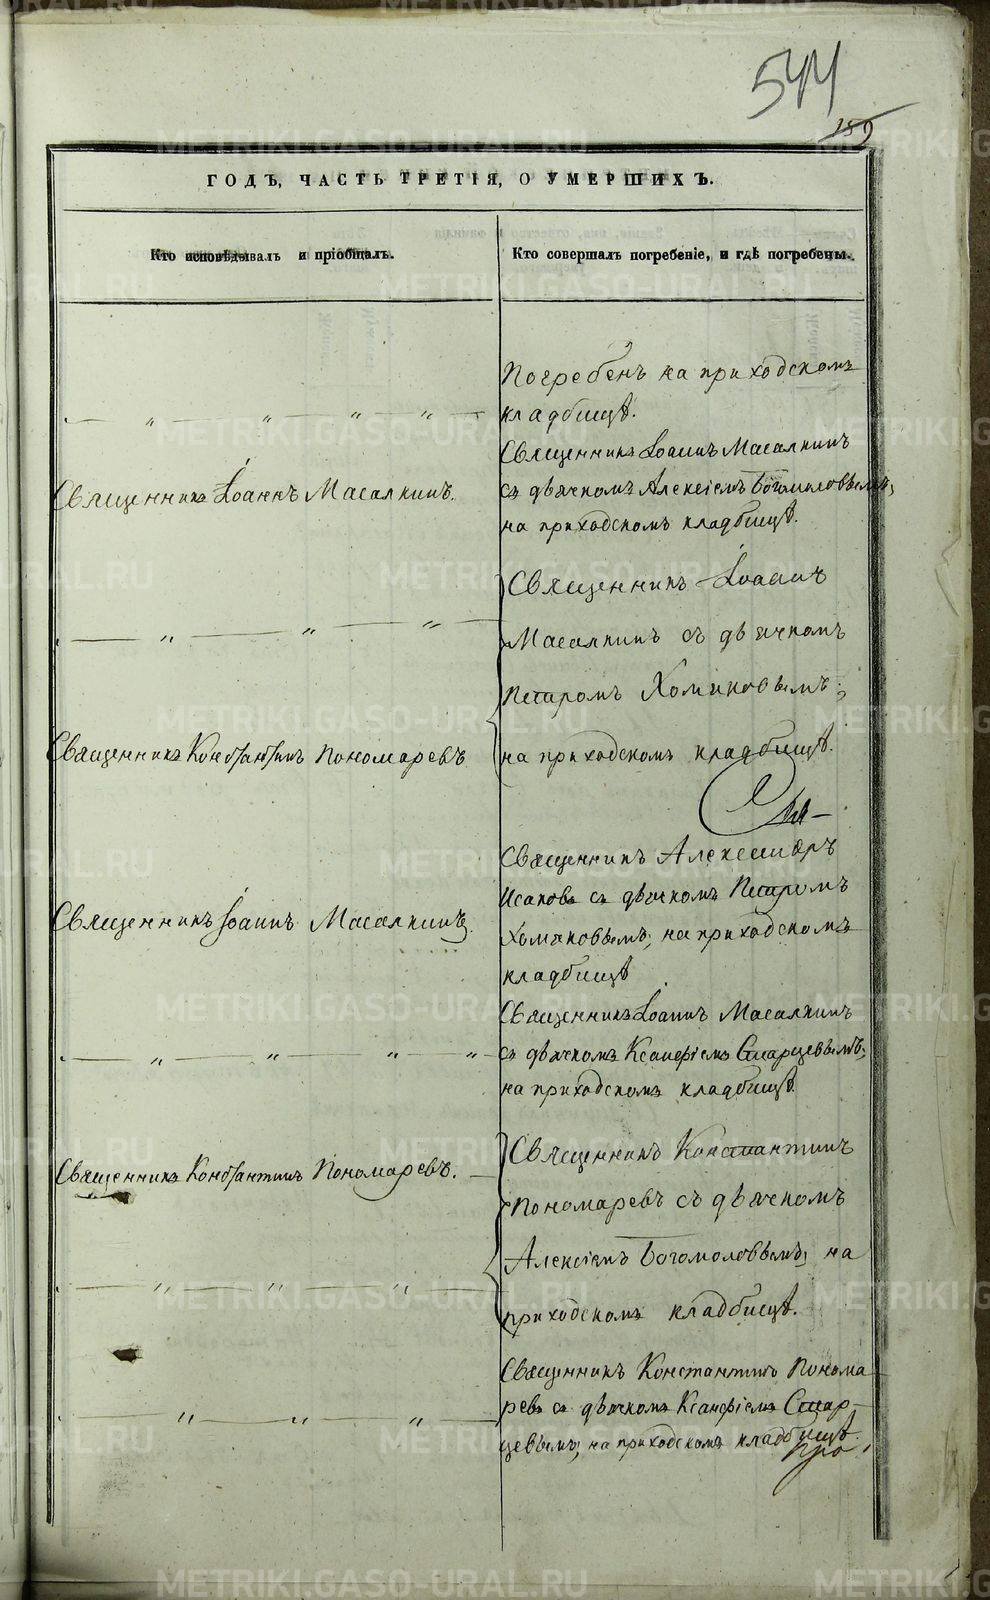 544
159
ГОДЪ, ЧАСТЬ ТРЕТІЯ, О УМЕРШИХЪ.
Кто исповѣдывалъ и пріобщалъ.
Кто совершалъ погребеніе, и гдѣ погребены.
Погребенъ на приходскомъ
кладбищѣ.
Священникъ Іоаннъ Масалкинъ.
Священникъ Іоаннъ Масалкинъ
съ дьячкомъ Алексіемъ Богомоловымъ,
на приходскомъ кладбищѣ.
Священникъ Іоаннъ
Масалкинъ съ дьячкомъ
Петромъ Хомяковымъ;
на приходскомъ кладбищѣ.
Священникъ Константинъ Пономаревъ
Священникъ Іоаннъ Масалкинъ.
Священникъ Александръ
Исаковъ съ дьячкомъ Петромъ
Хомяковымъ; на приходскомъ
кладбищѣ
Священникъ Іоаннъ Масалкинъ
съ дьячкомъ Ксанфіемъ Старцевымъ;
на приходскомъ кладбищѣ.
Священникъ Константинъ Пономаревъ.
Священникъ Константинъ
Пономаревъ съ дьячкомъ
Алексіемъ Богомоловымъ; на
приходскомъ кладбищѣ.
Священникъ Константинъ Понома
ревъ съ дьячкомъ Ксанфіемъ Стар-
цевымъ; на приходскомъ кладбищѣ.
METRIKI.GASO-URAL.RU